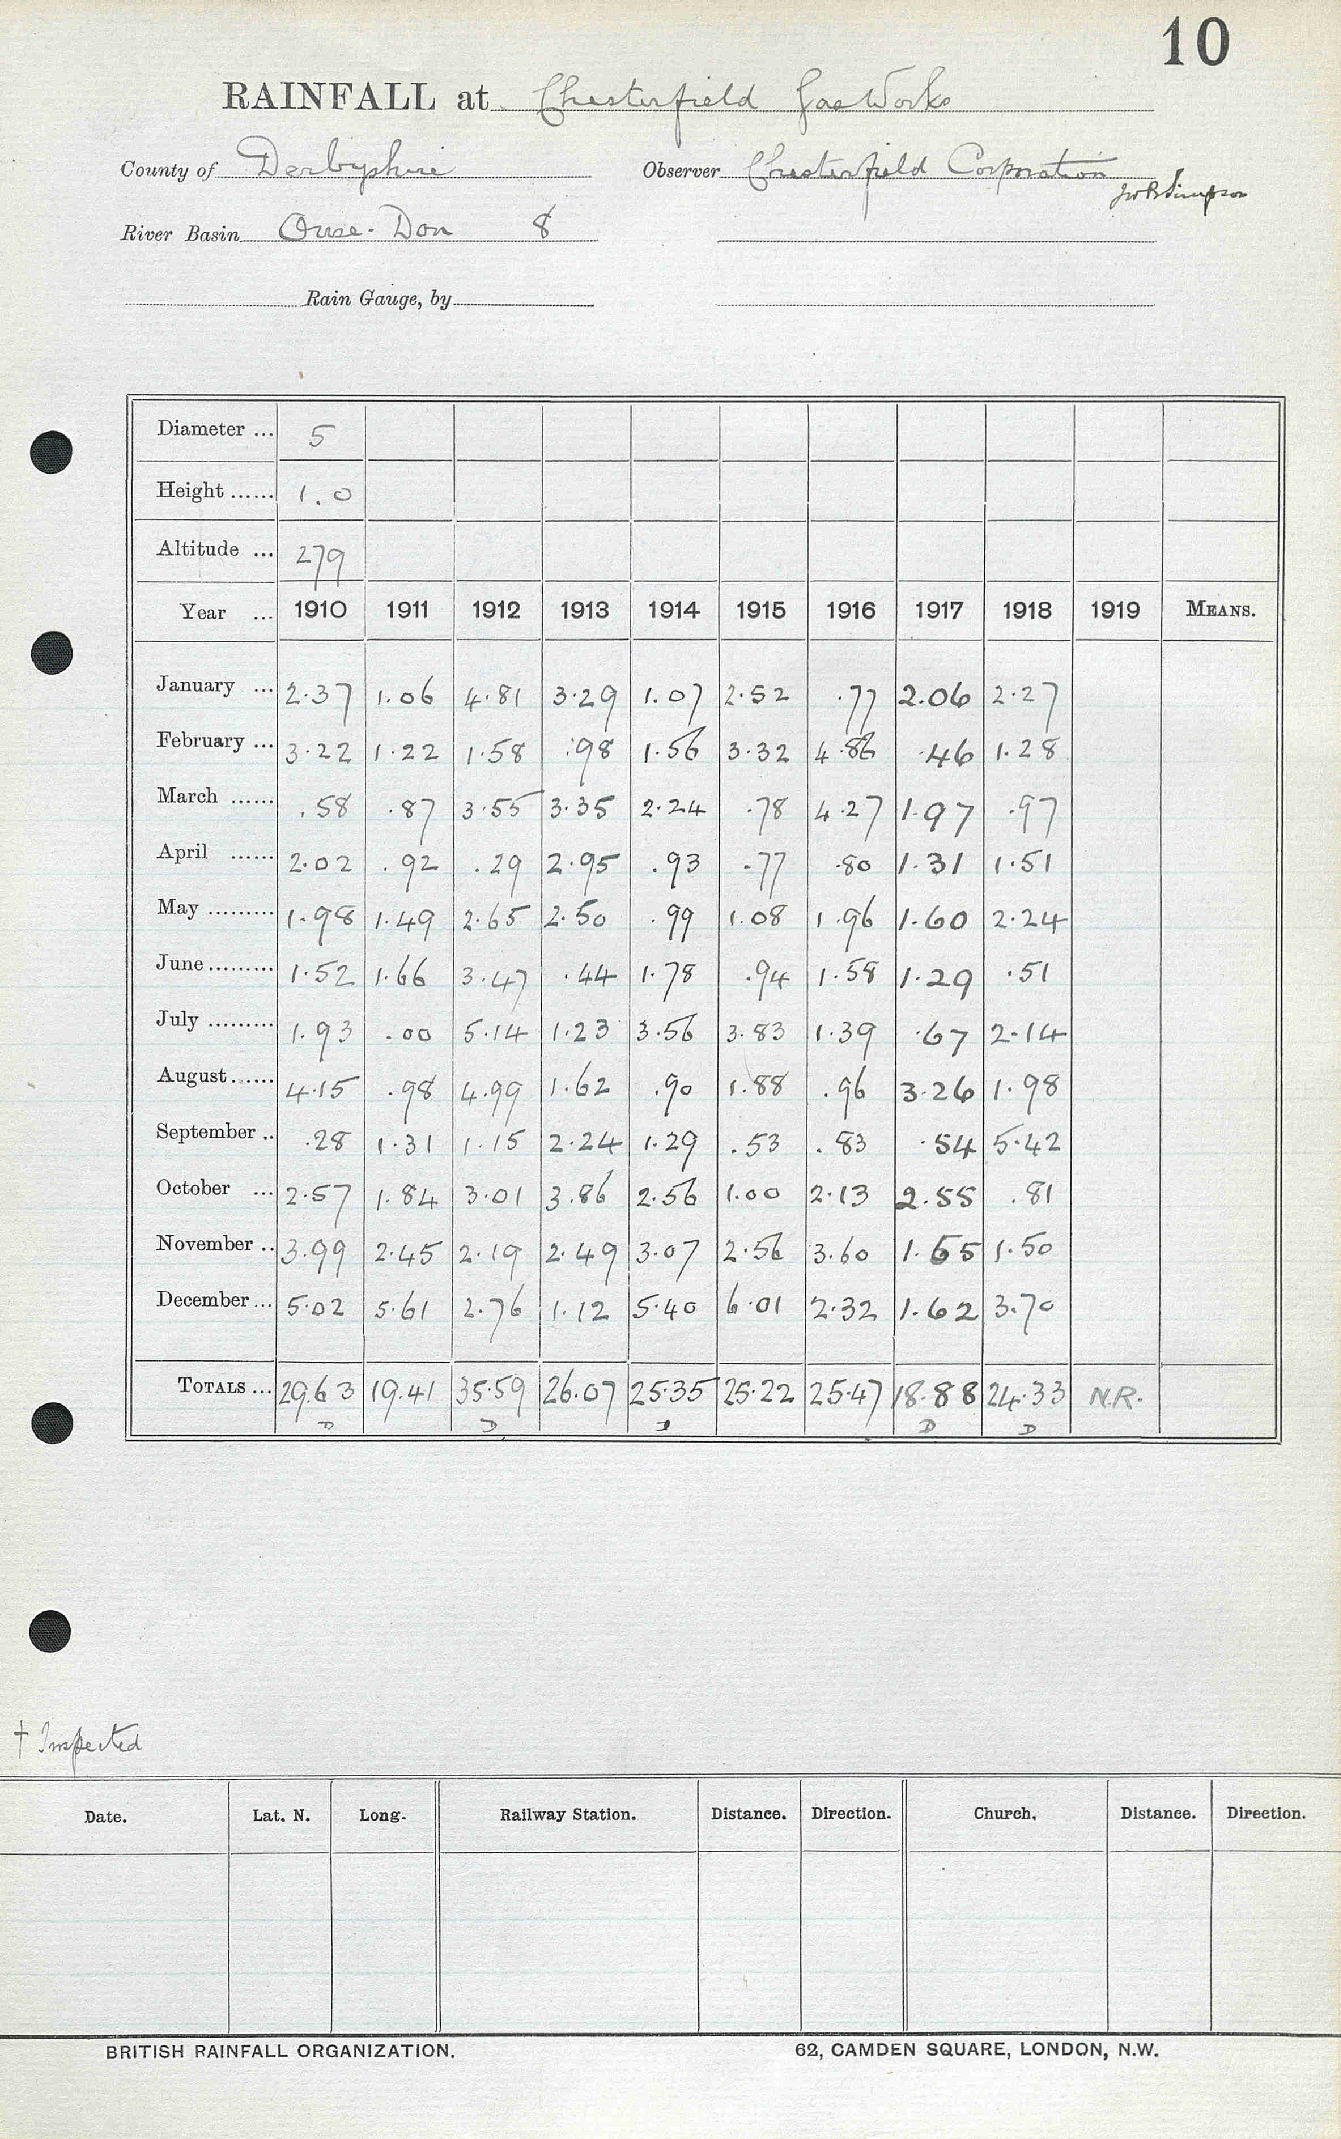 10
RAINFALL at Chesterfield Gas Works
County of Derbyshire Observer Chesterfield Corporation
Simpson
River Basin Ouse. Don 8
Rain Gauge, by
Diameter ... 5
Height ...... 1.0
Altitude ... 279
Year ... 1910 1911 1912 1913 1914 1915 1916 1917 1918 1919 MEANS.
January ... 2.37 1.06 4.81 3.29 1.07 2.52 .77 2.06 2.27
February ... 3.22 1.22 1.58 .98 1.56 3.32 4.86 .46 1.28
March ...... .58 .87 3.55 3.35 2.24 .78 4.27 1.97 .97
April ...... 2.02 .92 .29 2.95 .93 .77 .80 1.31 1.51
May ......... 1.98 1.49 2.65 2.50 .99 1.08 1.96 1.60 2.24
June ......... 1.52 1.66 3.47 .44 1.78 .94 1.58 1.29 .51
July ......... 1.93 .00 5.14 1.23 3.56 3.83 1.39 .67 2.14
August ...... 4.15 .98 4.99 1.62 .90 1.88 .96 3.26 1.98
September .. .28 1.31 1.15 2.24 1.29 .53 .83 .54 5.42
October ... 2.57 1.84 3.01 3.86 2.56 1.00 2.13 2.55 .81
November .. 3.99 2.45 2.19 2.49 3.07 2.56 3.60 1.65 1.50
December ... 5.02 5.61 2.76 1.12 5.40 6.01 2.32 1.62 3.70
TOTALS ... 29.63 19.41 35.59 26.07 25.35 25.22 25.47 18.88 24.33 N.R.
D D D D D
† Inspected
Date. Lat. N. Long. Railway Station. Distance. Direction. Church. Distance. Direction.
BRITISH RAINFALL ORGANIZATION. 62, CAMDEN SQUARE, LONDON, N.W.